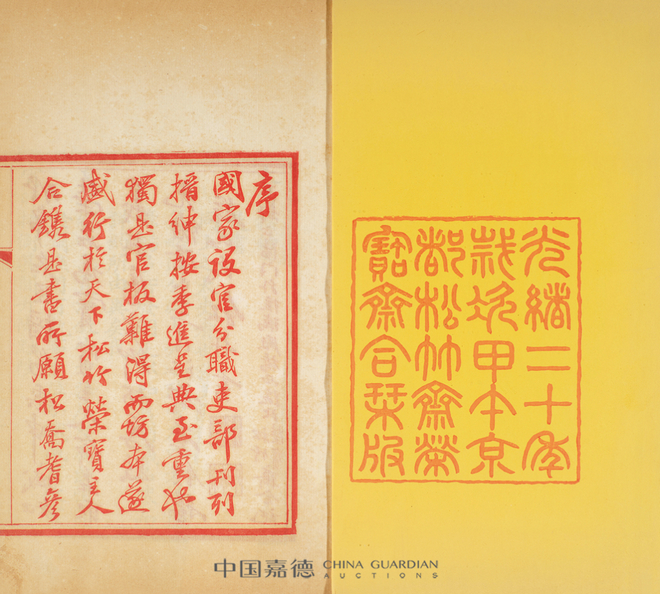 光緒二十年
歲次甲午京
都松竹齋榮
寶齋合栞版
序
國家設官分職吏部刊列
搢紳按季進呈典至重也
獨是官板難得而坊本遂
盛行於天下松竹榮寶主人
合鐫是書所願松喬耆彥
中国嘉德 CHINA GUARDIAN
AUCTIONS